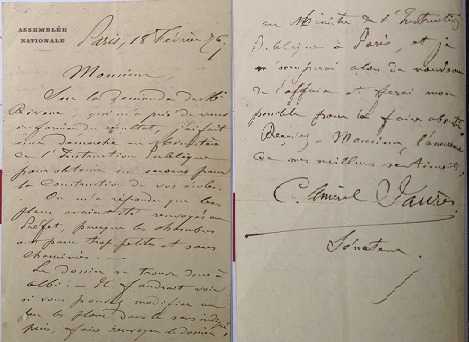 ASSEMBLÉE
NATIONALE
Paris, 18 Février 76
Monsieur
Sur la demande de Mr
qui m'a prié de vous
informer du résultat, j'ai fait
une démarche au Ministère
de l'Instruction publique
pour obtenir un secours pour
la construction de vos écoles.
On m'a répondu que les
plans avaient été renvoyés au
Préfet, parceque les chambres
sont trop petites et sans
cheminées.
Le dossier se trouve donc à
Albi. Il faudrait voir
si vous pouvez modifier un
peu les plans dans le sens indiqué
puis, faire renvoyer le dossier
au Ministre de l'Instruction
Publique à Paris, et je
m'occuperai alors de nouveau
de l'affaire et ferai mon
possible pour la faire
Monsieur, l'assurance
de mes meilleurs sentiments.
C. Amiral Jaurès
Sénateur